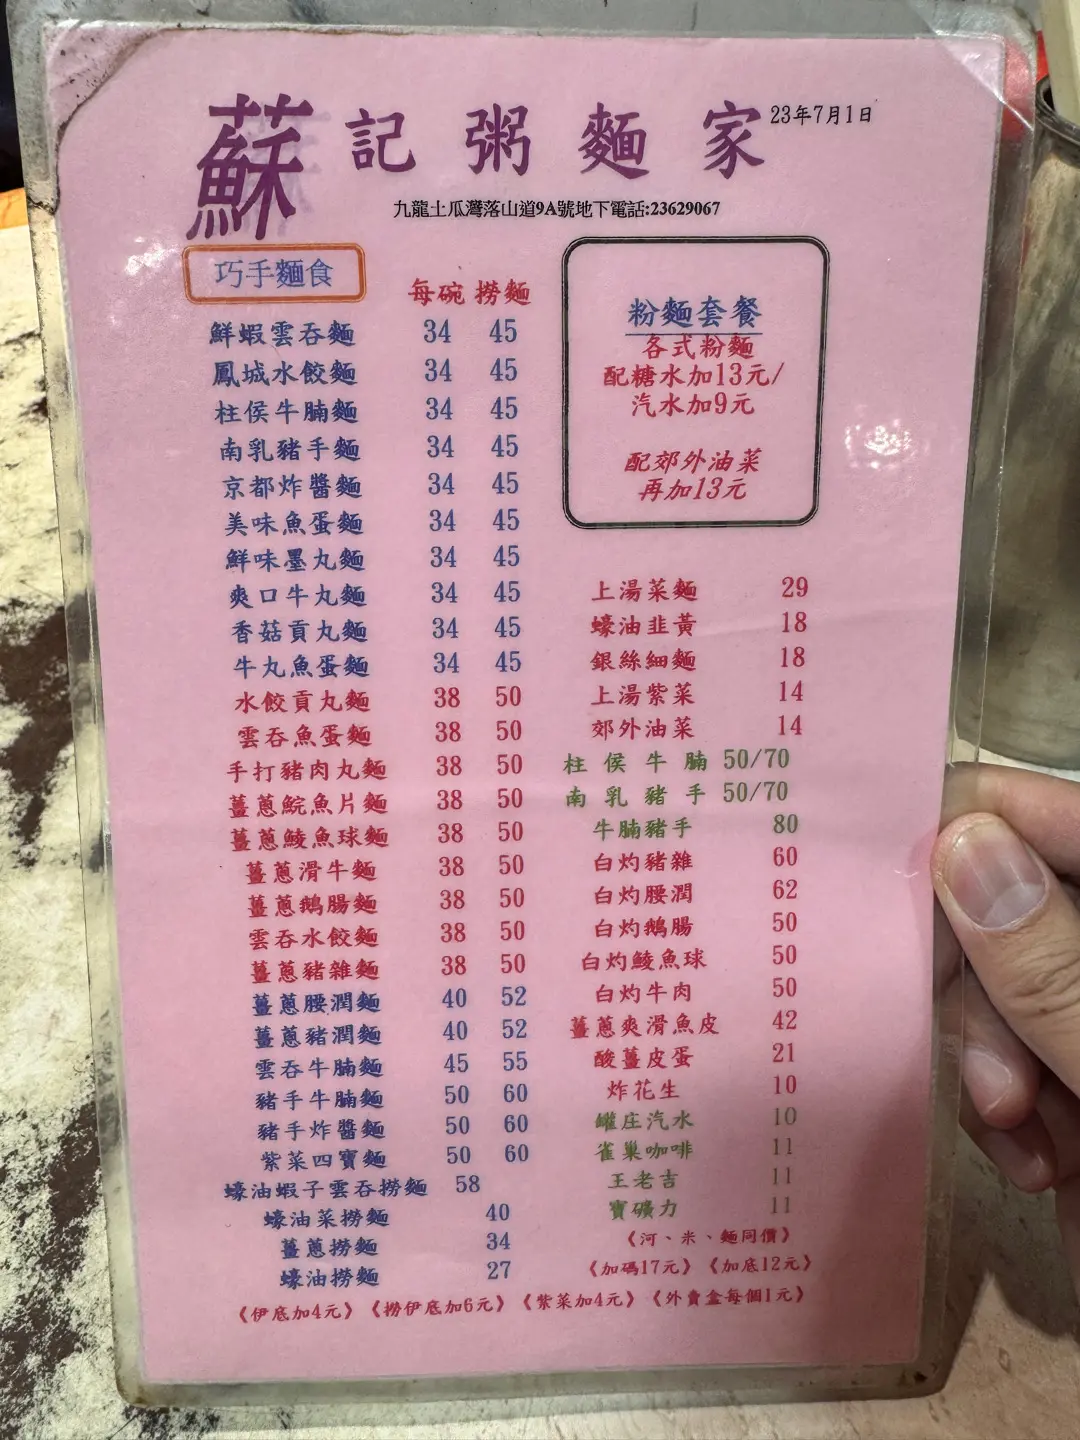 蘇記粥麵家 23年7月1日
九龍土瓜灣落山道9A號地下電話:23629067
巧手麵食
每碗 撈麵
鮮蝦雲吞麵 34 45
鳳城水餃麵 34 45
柱侯牛腩麵 34 45
南乳豬手麵 34 45
京都炸醬麵 34 45
美味魚蛋麵 34 45
鮮味墨丸麵 34 45
爽口牛丸麵 34 45
香菇貢丸麵 34 45
牛丸魚蛋麵 34 45
水餃貢丸麵 38 50
雲吞魚蛋麵 38 50
手打豬肉丸麵 38 50
薑蔥鯇魚片麵 38 50
薑蔥鯪魚球麵 38 50
薑蔥滑牛麵 38 50
薑蔥鵝腸麵 38 50
雲吞水餃麵 38 50
薑蔥豬雜麵 38 50
薑蔥腰潤麵 40 52
薑蔥豬潤麵 40 52
雲吞牛腩麵 45 55
豬手牛腩麵 50 60
豬手炸醬麵 50 60
紫菜四寶麵 50 60
蠔油蝦子雲吞撈麵 58
蠔油菜撈麵 40
薑蔥撈麵 34
蠔油撈麵 27
粉麵套餐
各式粉麵
配糖水加13元/
汽水加9元
配郊外油菜
再加13元
上湯菜麵 29
蠔油韭黃 18
銀絲細麵 18
上湯紫菜 14
郊外油菜 14
柱侯牛腩 50/70
南乳豬手 50/70
牛腩豬手 80
白灼豬雜 60
白灼腰潤 62
白灼鵝腸 50
白灼鯪魚球 50
白灼牛肉 50
薑蔥爽滑魚皮 42
酸薑皮蛋 21
炸花生 10
罐庄汽水 10
雀巢咖啡 11
王老吉 11
寶礦力 11
《河、米、麵同價》
《加碼17元》《加底12元》
《伊底加4元》《撈伊底加6元》《紫菜加4元》《外賣盒每個1元》